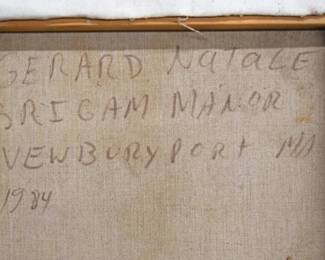 GERARD NATALE
BRIGAM MANOR
NEWBURYPORT MA
1984